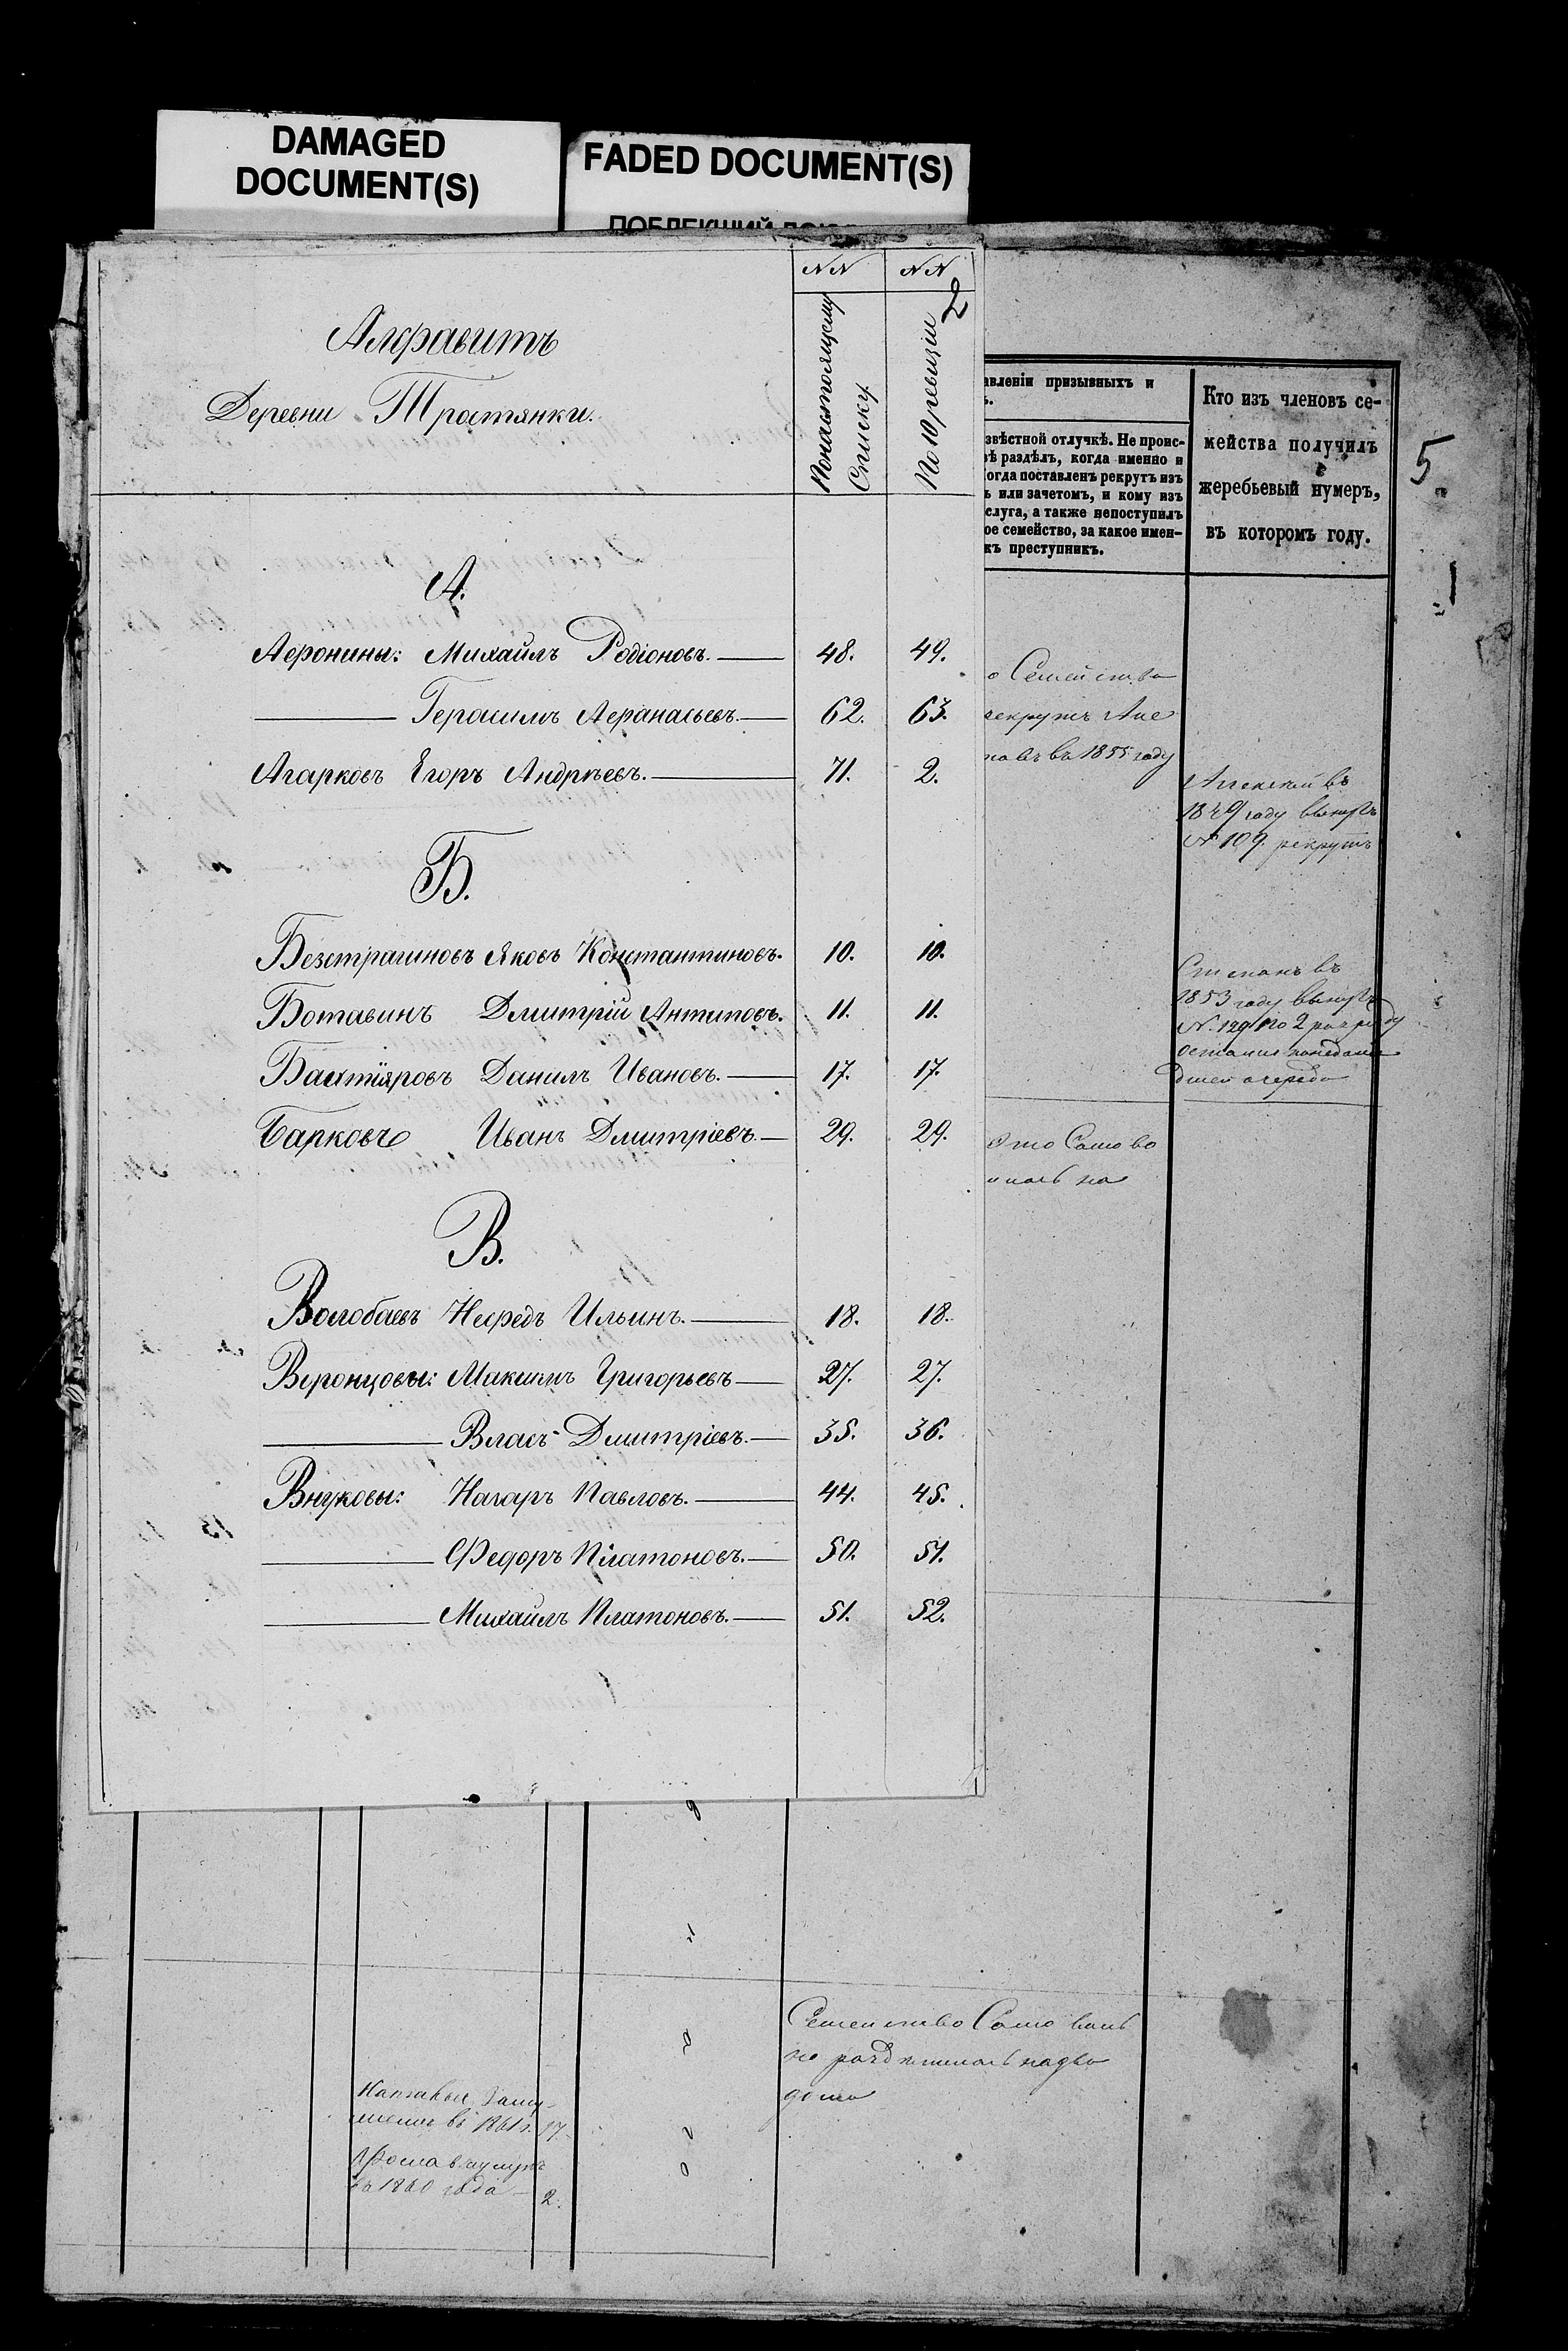 DAMAGED
DOCUMENT(S)
FADED DOCUMENT(S)
NN NN
2
Алфавитъ
Деревни Тростянки.
По настоящему
Списку.
По 10 ревизіи
А.
Афонины: Михаилъ Родіоновъ. 48. 49.
Герасимъ Афанасьевъ. 62. 63.
Агарковъ Егоръ Андреѣевъ. 71. 2.
Б.
Безстрашновъ Яковъ Константиновъ. 10. 10.
Ботавинъ Дмитрій Антиповъ. 11. 11.
Бахтіяровъ Данилъ Ивановъ. 17. 17.
Барковъ Иванъ Дмитріевъ. 29. 29.
В.
Волобаевъ Нефедъ Ильинъ. 18. 18.
Воронцовы: Максимъ Григорьевъ 27. 27.
Власъ Дмитріевъ. 35. 36.
Внуковы: Назаръ Павловъ. 44. 45.
Федоръ Платоновъ. 50. 51.
Михаилъ Платоновъ. 51. 52.
авленіи призывныхъ и
звѣстной отлучкѣ. Не проис-
ѣ раздѣлъ, когда именно и
огда поставленъ рекрутъ изъ
ь или зачетомъ, и кому изъ
слуга, а также непоступилъ
ое семейство, за какое имен-
къ преступникъ.
Кто изъ членовъ се-
мейства получилъ
жеребьевый нумеръ,
въ которомъ году.
5.
1
о Семейства
рекрутъ Але
въ 1855 году
Алексей въ
1849 году вынулъ
№ 109. рекрутъ
Степанъ въ
1853 году вынулъ
№ 129 по 2 разряду
Это Само во
на
Семейство Само воль
но разделилось на два
дома
въ 1861 г. 17.
Фома
въ 1860 года 2.